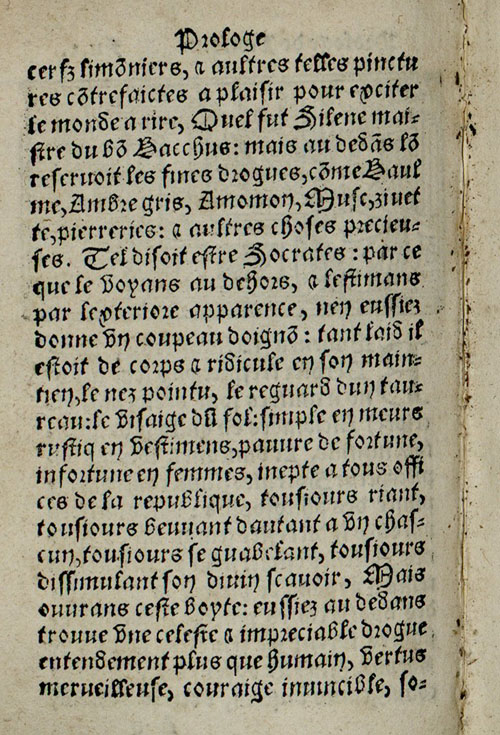 Prologe
cerfz limõniers, & aultres telles pinctu
res cõtrefaictes a plaisir pour exciter
le monde a rire, Quel fut Silene mai-
stre du bõ Bacchus: mais au dedãs lõ
reseruoit les fines drogues, cõme Baul
me, Ambre gris, Amomon, Musc, ziuet
te, pierreries: & aultres choses precieu-
ses. Tel disoit estre Socrates: par ce
que le voyans au dehors, & lestimans
par lexteriore apparence, nen eussiez
donne vn coupeau doignõ: tant laid il
estoit de corps & ridicule en son main-
tien, le nez pointu, le reguard dun tau-
reau: le visaige dũ fol: simple en meurs
rustiq en vestimens, pauure de fortune,
infortune en femmes, inepte a tous offi
ces de la republique, tousiours riant,
tousiours beuuant dautant a vn chas-
cun, tousiours se guabelant, tousiours
dissimulant son diuin scauoir, Mais
ouurans ceste boyte: eussiez au dedans
trouue vne celeste & impreciable drogue
entendement plus que humain, vertus
merueilleuse, couraige inuincible, so-